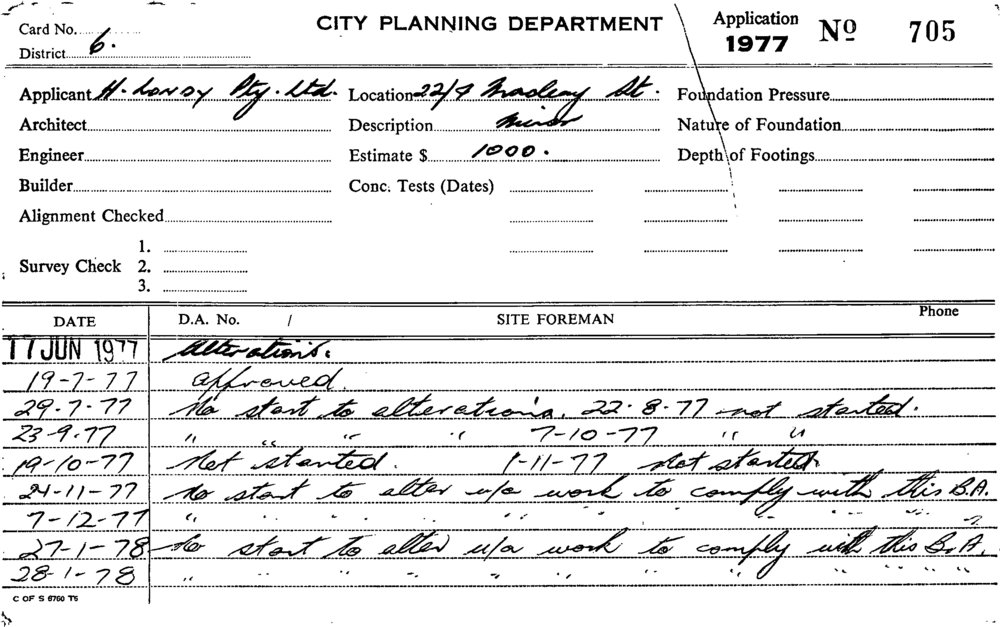 Card No.
CITY PLANNING DEPARTMENT
Application 1977 Nº 705
District 6.
Applicant H. Lowdy Pty. Ltd. Location 22/9 Macleay St. Foundation Pressure
Architect Description Minor Nature of Foundation
Engineer Estimate $ 1000. Depth of Footings
Builder Conc. Tests (Dates)
Alignment Checked
1.
Survey Check 2.
3.
DATE D.A. No. / SITE FOREMAN Phone
17 JUN 1977 Alterations.
19-7-77 approved.
29-7-77 No start to alterations. 22-8-77 not started.
23-9-77 " " " " 7-10-77 " "
19-10-77 Not started. 1-11-77 Not started.
24-11-77 No start to alter u/a work to comply with this B.A.
7-12-77 " " " " " " " " " " "
27-1-78 No start to alter u/a work to comply with this B.A.
28-1-78 " " " " " " " " " " "
C OF S 6760 T5